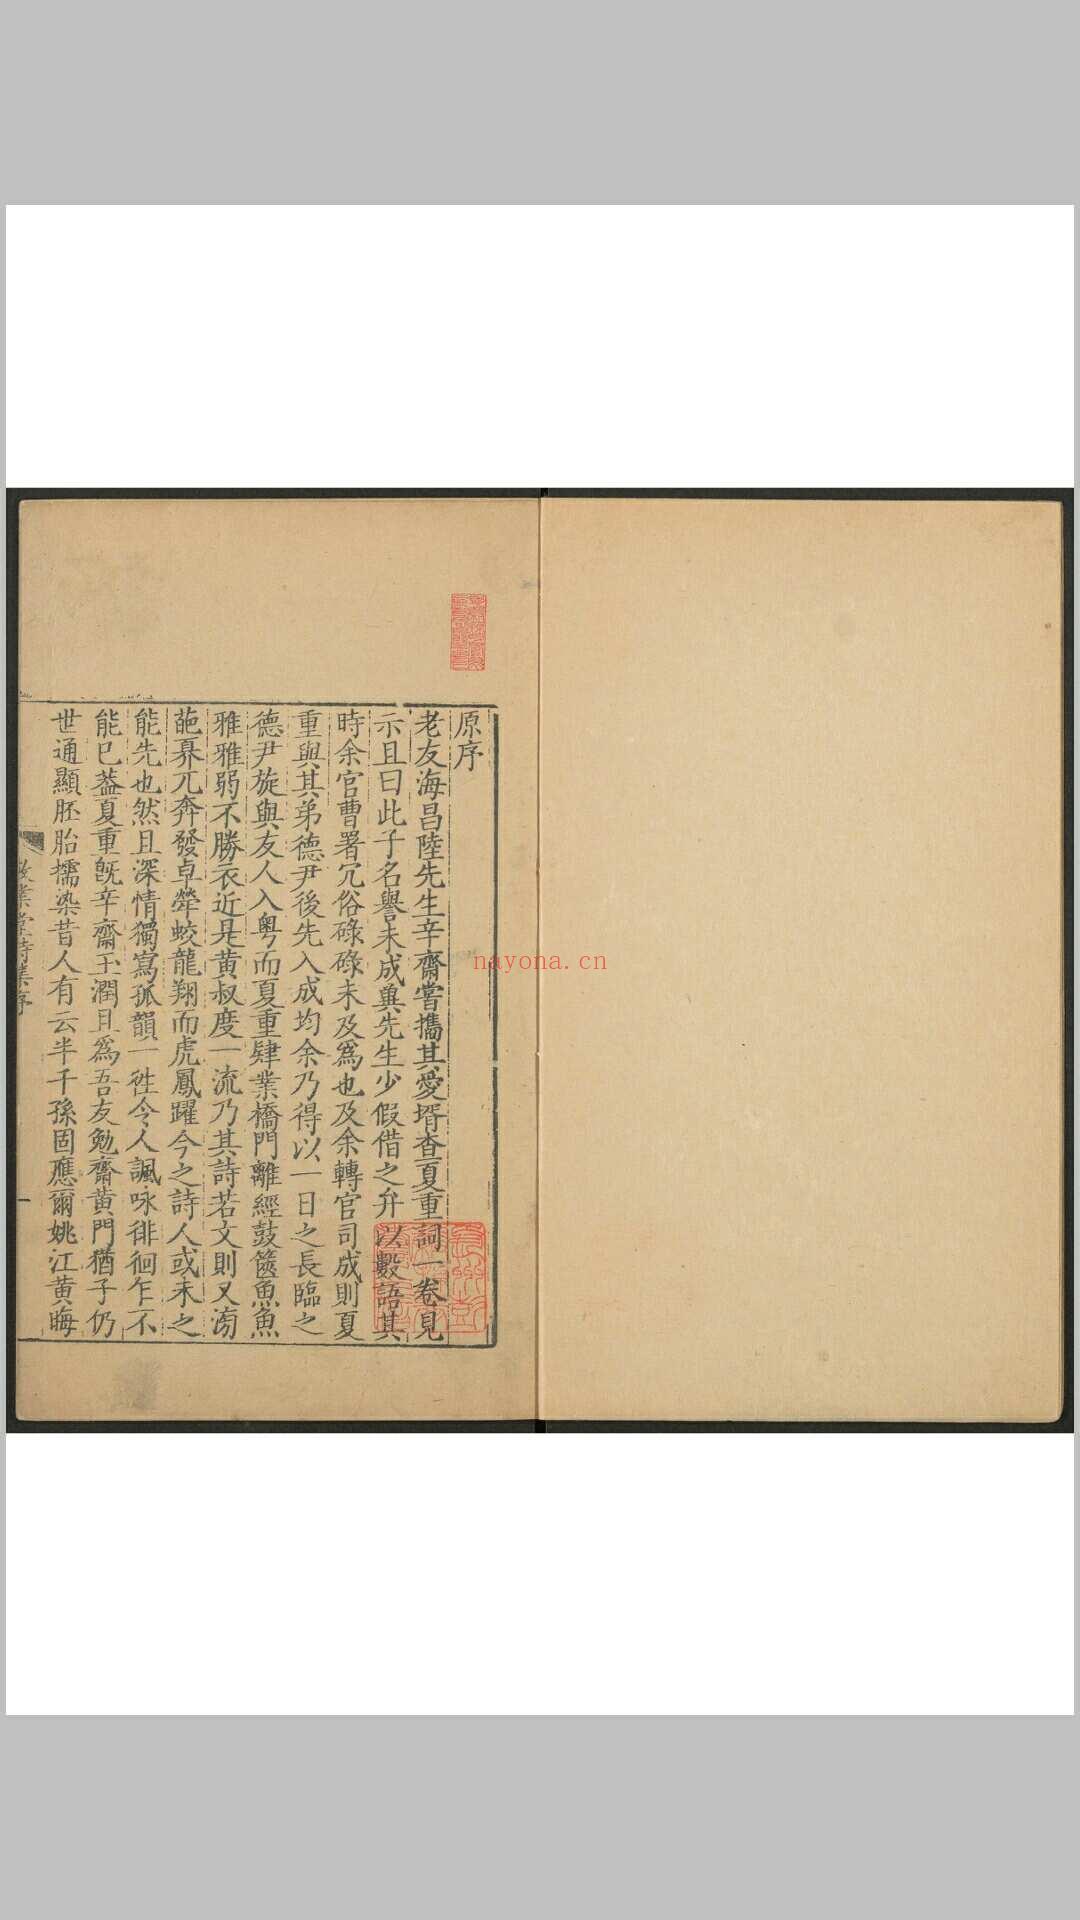 原序
老友海昌陸先生辛齋嘗攜其愛壻查夏重詞一卷見
示且曰此子名譽未成兾先生少假借之弁以數語其
時余官曹署冗俗碌碌未及爲也及余轉官司成則夏
重與其弟德尹後先入成均余乃得以一日之長臨之
德尹旋與友人入粤而夏重肄業橋門離經鼓篋魚魚
雅雅弱不勝衣近是黄叔度一流乃其詩若文則又滂
葩奡兀奔發卓犖蛟龍翔而虎鳳躍今之詩人或未之
能先也然且深情獨寫孤韻一徃令人諷咏徘徊乍不
能已葢夏重旣辛齋玉潤且爲吾友勉齋黄門猶子仍
世通顯胚胎擩染昔人有云半千孫固應爾姚江黄晦
敬業堂詩集序
一
nayona.cn